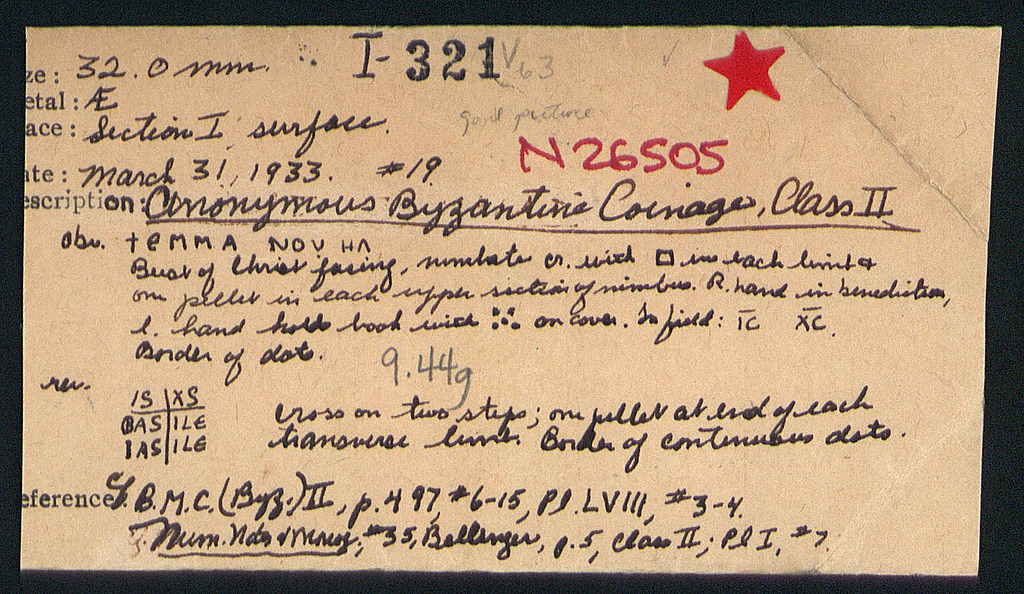 ze: 32.0 mm. I-321 V63
etal: Æ
good picture
ace: Section I, surface.
N26505
ate: March 31, 1933. #19
escription: Anonymous Byzantine Coinage, Class II
Obv. +EMMA NOVHΛ
Bust of Christ facing, nimbate cr. with □ in each limb &
one pellet in each upper section of nimbus. R. hand in benediction,
l. hand holds book with ⁙ on cover. In field: I̅C̅ X̅C̅.
Border of dots.
9.44g
rev.
IS|XS
BAS|ILE
BAS|ILE
Cross on two steps; one pellet at end of each
transverse limb. Border of continuous dots.
eference: Cf. B.M.C. (Byz.) II, p. 497, #6-15, Pl. LVIII, #3-4.
Num. Notes & Monog., #35, Bellinger, p. 5, Class II; Pl I, #7